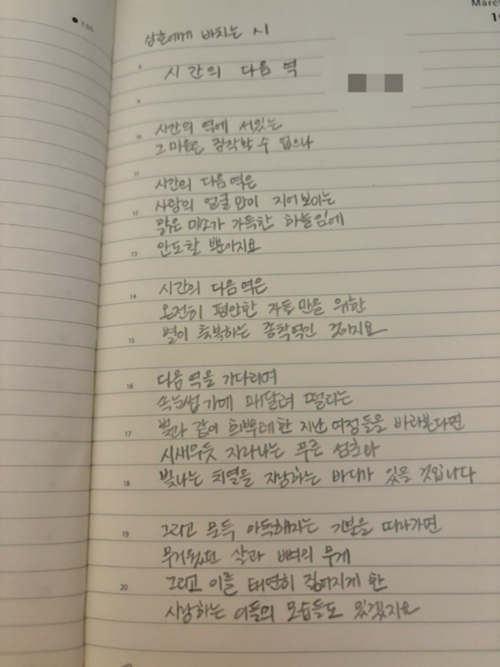 March
삼촌에게 바치는 시
시간의 다음 역
시간의 역에 서있는
그 마음은 짐작할 수 없으나
시간의 다음 역은
사랑의 얼굴만이 지어보이는
맑은 미소가 가득한 하늘임에
안도할 뿐이지요
시간의 다음 역은
온전히 편안한 자들만을 위한
별이 축복하는 종착역인 것이지요
다음 역을 기다리며
속눈썹가에 매달려 떨리는
빛과 같이 희뿌레한 지난 여정들을 바라본다면
시새우듯 자라나는 푸른 섬초와
빛나는 희열을 자랑하는 바다가 있을 것입니다
그리고 문득 아득해지는 기분을 따라가면
무거웠던 살과 뼈의 무게
그리고 이를 태연히 짊어지게 한
사랑하는 이들의 모습들도 있겠지요